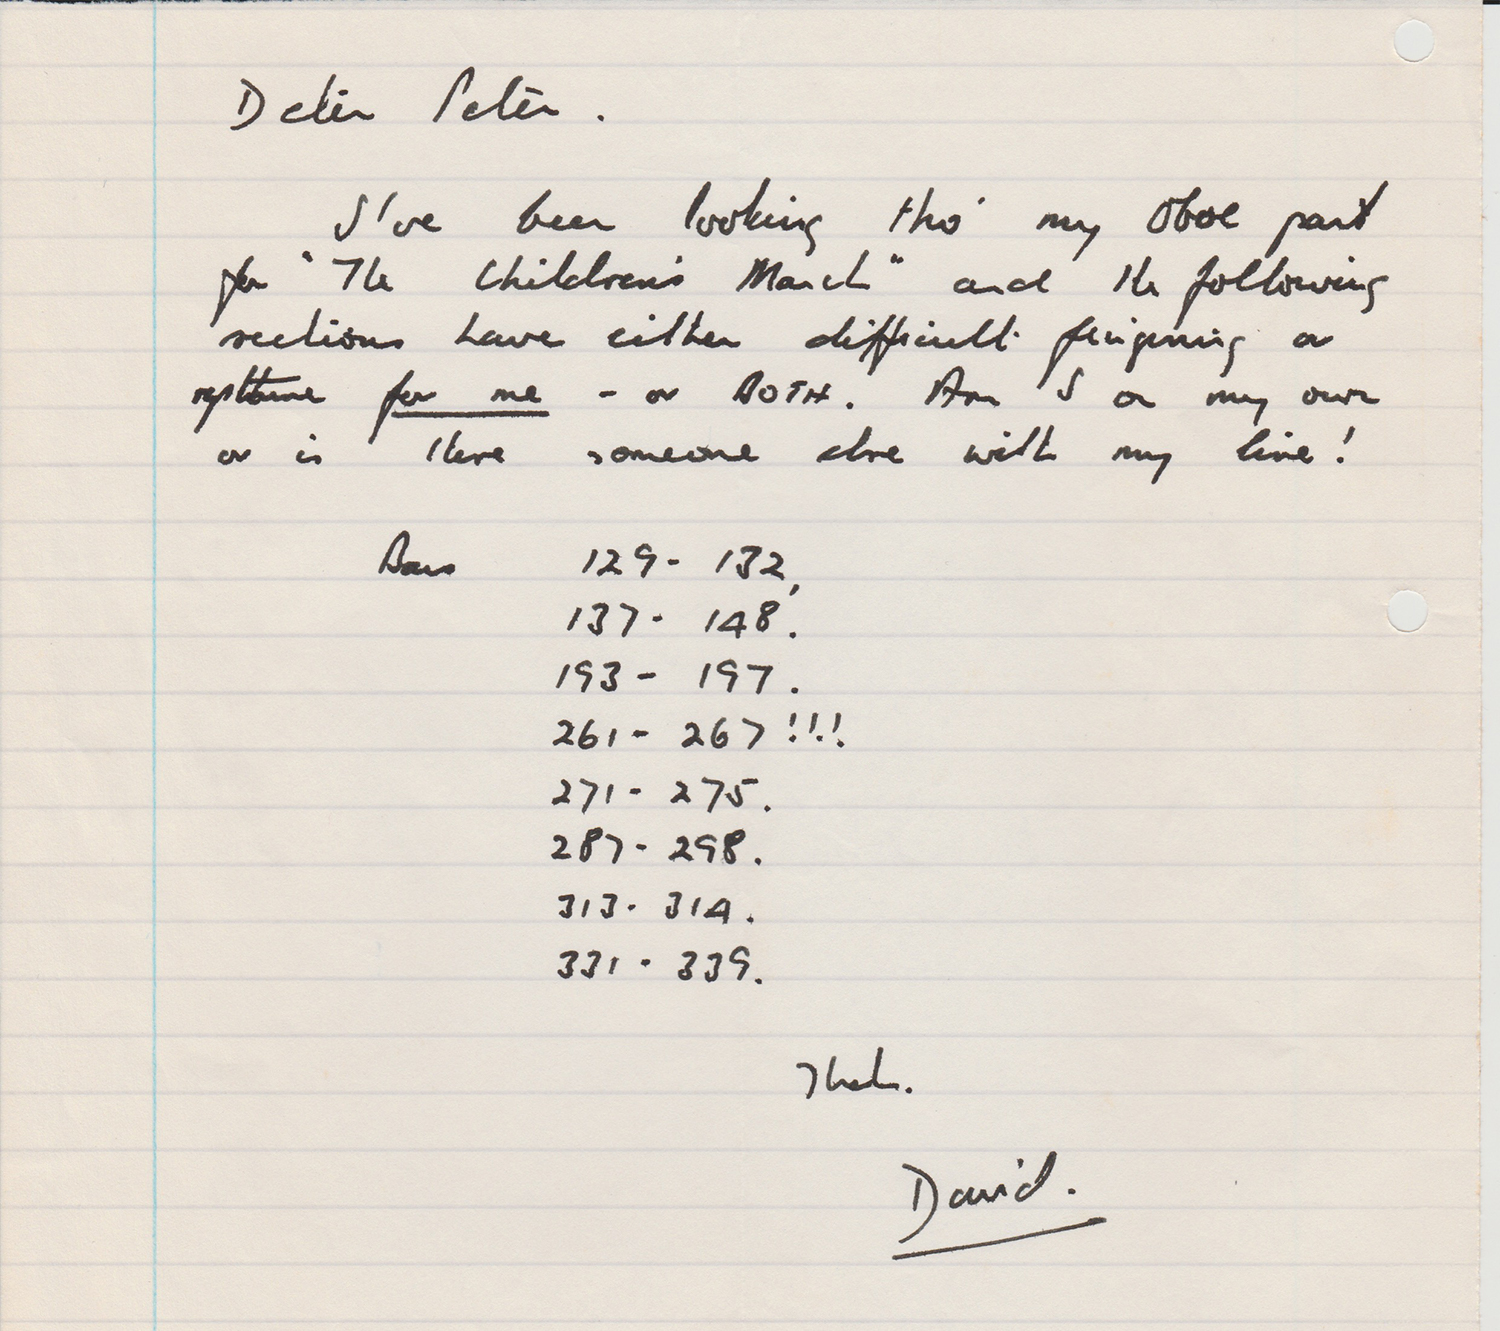 Peter.
I've been looking thro' my Oboe part
for "The Children's March" and the following
sections have either difficult fingering or
for me - or BOTH. Am I on my own
or is there someone else with my line!
Bars 129 - 132,
137 - 148.
193 - 197.
261 - 267 !!!
271 - 275.
287 - 298.
313 - 314.
331 - 339.
David.